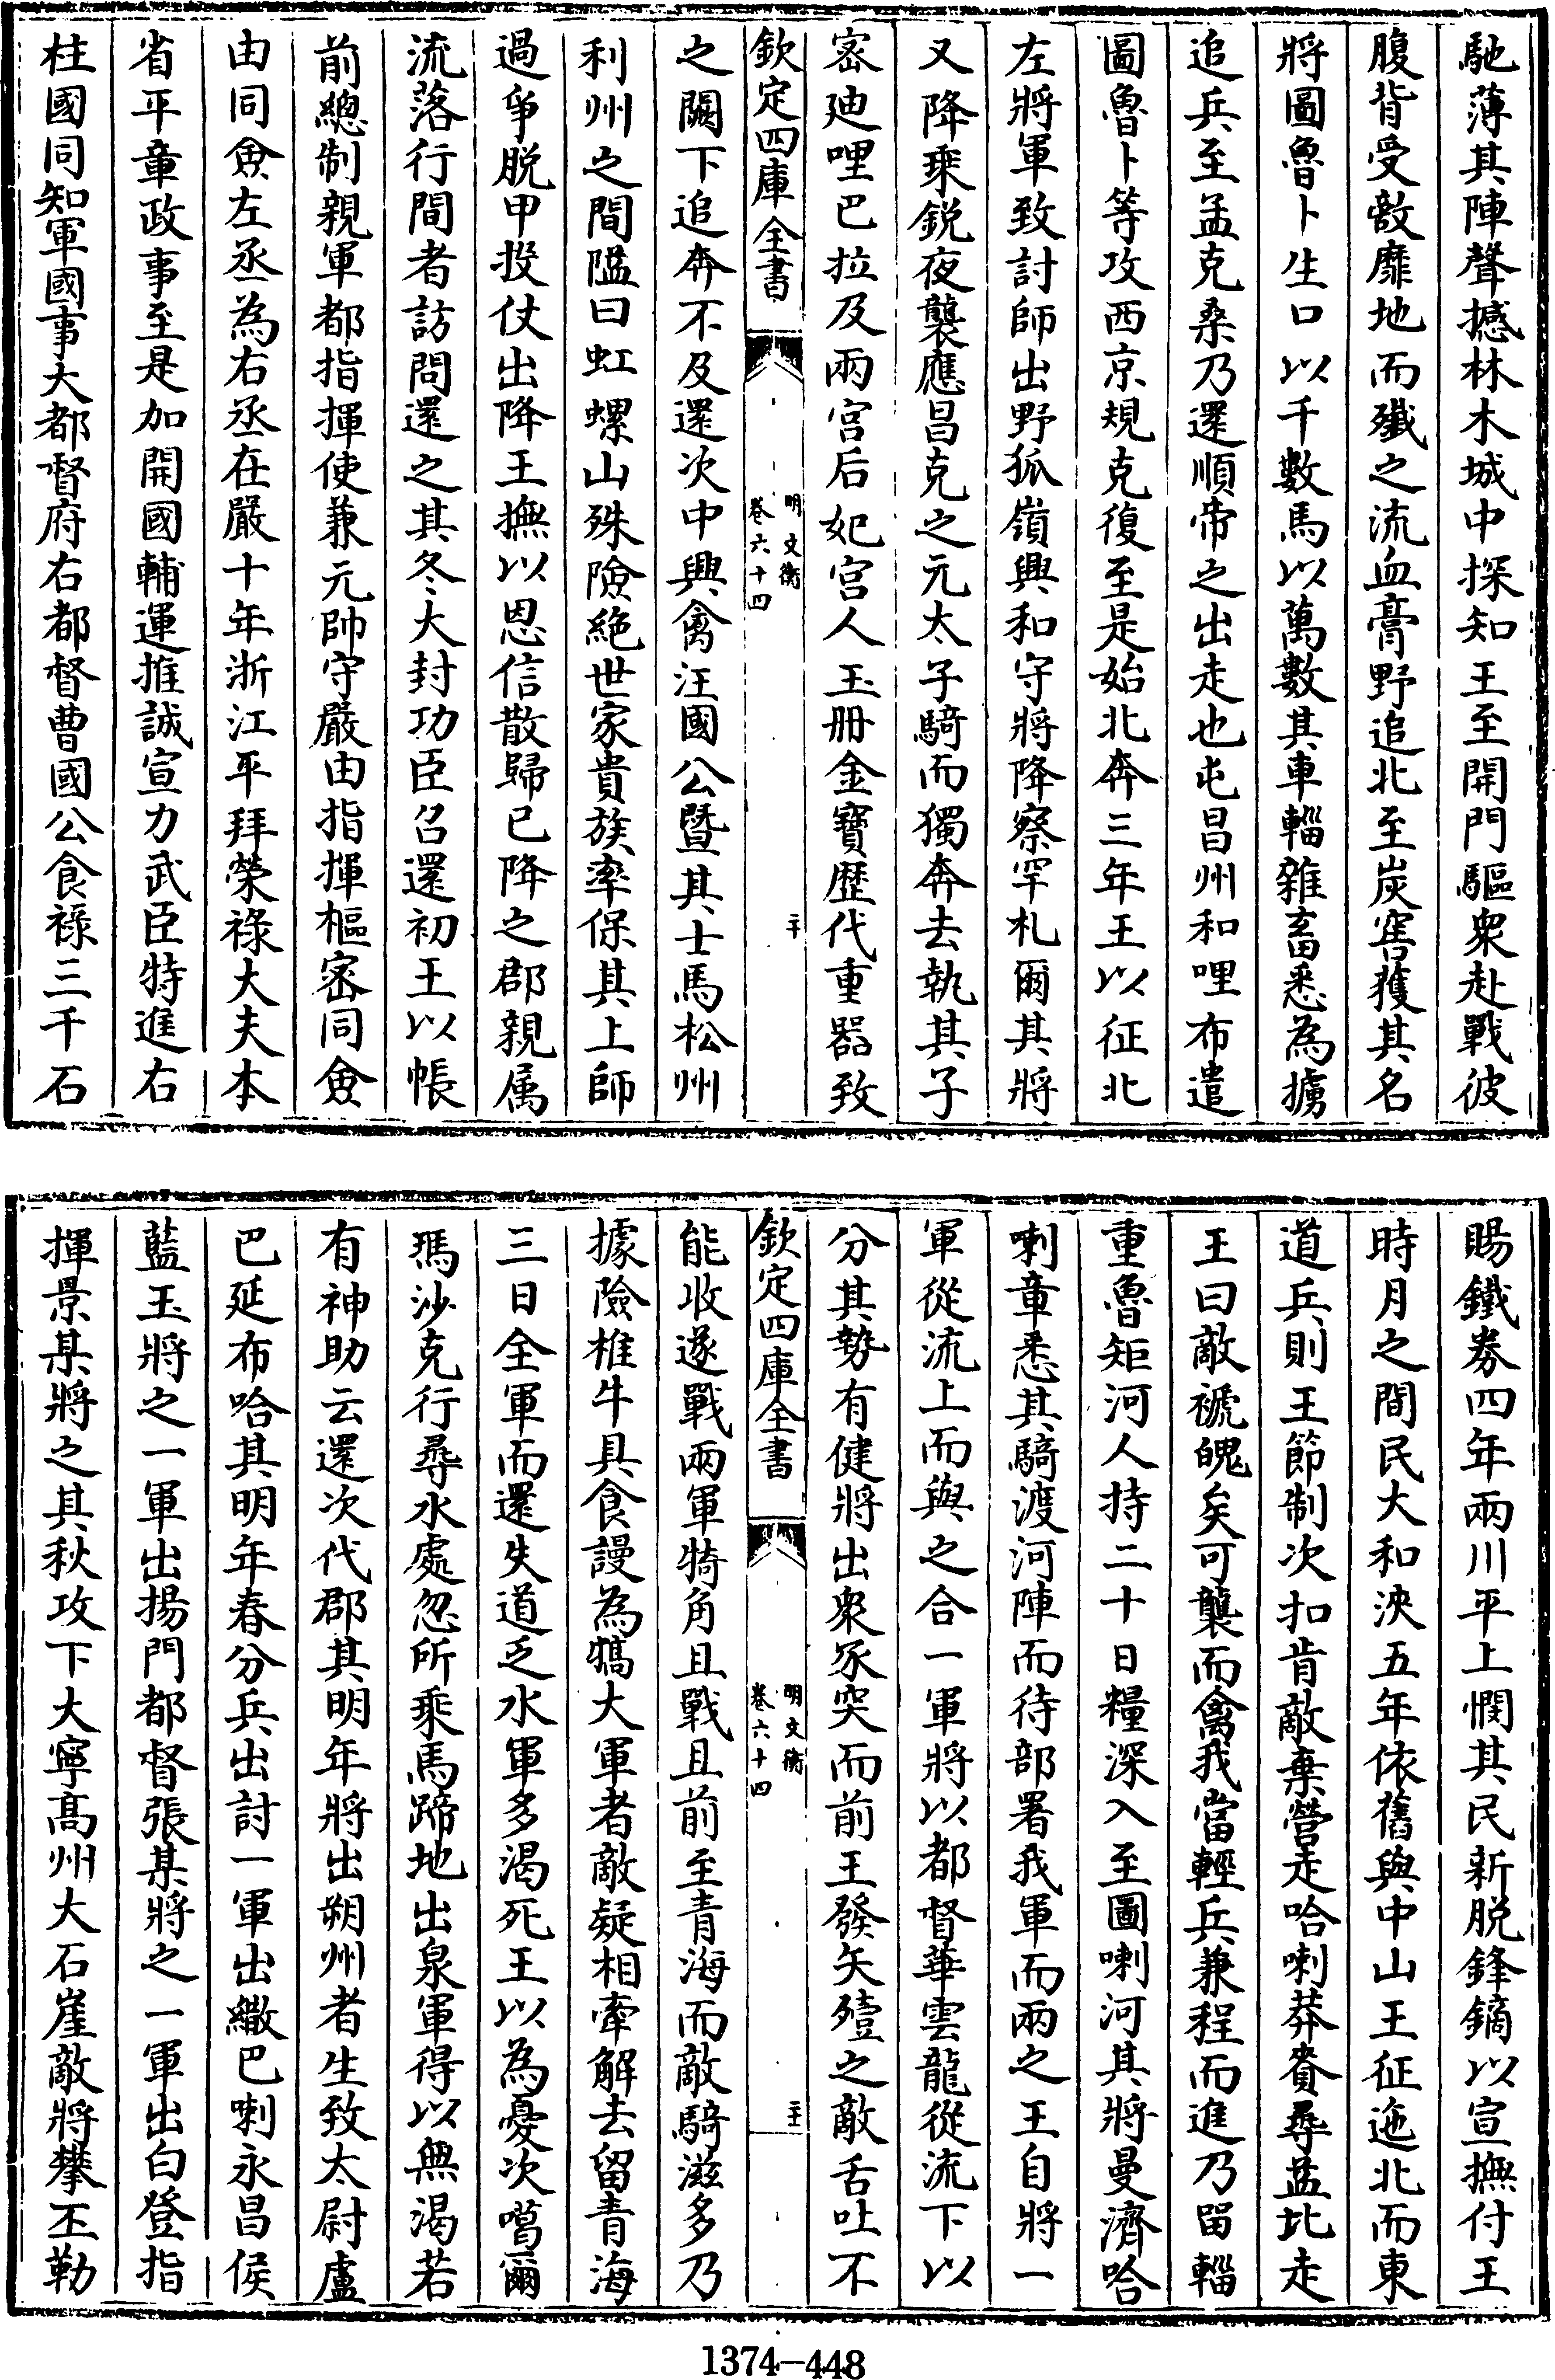 馳薄其陣聲撼林木城中探知王至開門驅衆赴戰彼
腹背受敵靡地而殲之流血膏野追北至炭窖獲其名
將圖魯卜生口以千數馬以萬數其車輜雜畜悉為擄
追兵至孟克桑乃還順帝之出走也屯昌州和哩布遣
圖魯卜等攻西京規克復至是始北奔三年王以征北
左將軍致討師出野狐嶺興和守將降察罕札爾其將
又降乘銳夜襲應昌克之元太子騎而獨奔去執其子
密廸哩巴拉及兩宮后妃宮人玉冊金寶歷代重器致
欽定四庫全書
明文衡
卷六十四
二十
之闕下追奔不及還次中興禽汪國公暨其士馬松州
利州之間隘曰虹螺山殊險絶世家貴族率保其上師
過爭脱甲投仗出降王撫以恩信散歸已降之郡親属
流落行間者訪問還之其冬大封功臣召還初王以帳
前總制親軍都指揮使兼元帥守嚴由指揮樞密同僉
由同僉左丞為右丞在嚴十年浙江平拜榮祿大夫本
省平章政事至是加開國輔運推誠宣力武臣特進右
柱國同知軍國事大都督府右都督曹國公食祿三千石
賜鐵券四年兩川平上憫其民新脱鋒鏑以宣撫付王
時月之間民大和浹五年依舊與中山王征迤北而東
道兵則王節制次扣肯敵棄營走哈喇莽賚尋益北走
王曰敵褫魄矣可襲而禽我當輕兵兼程而進乃留輜
重魯矩河人持二十日糧深入至圖喇河其將曼濟哈
喇章悉其騎渡河陣而待部署我軍而兩之王自將一
軍從流上而與之合一軍將以都督華雲龍從流下以
分其勢有健將出衆豕突而前王發矢殪之敵舌吐不
欽定四庫全書
明文衡
卷六十四
二十一
能收遂戰兩軍犄角且戰且前至青海而敵騎滋多乃
據險椎牛具食謾為犒大軍者敵疑相牽解去留青海
三日全軍而還失道乏水軍多渴死王以為憂次噶爾
瑪沙克行尋水處忽所乘馬蹄地出泉軍得以無渴若
有神助云還次代郡其明年將出朔州者生致太尉盧
巴延布哈其明年春分兵出討一軍出繖巴喇永昌侯
藍玉將之一軍出揚門都督張某將之一軍出白登指
揮景某將之其秋攻下大寧高州大石崖敵將攀丕勒
1374-448